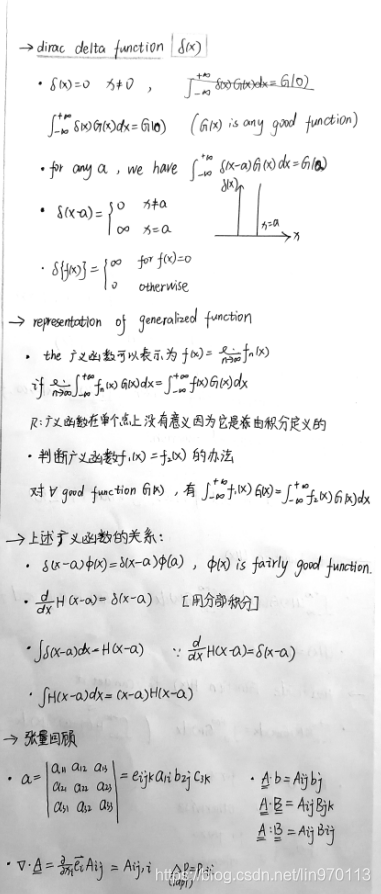 → dirac delta function δ(x)
· δ(x)=0 x≠0 , ∫_{-∞}^{+∞} δ(x)G(x)dx = G(0)
∫_{-∞}^{+∞} δ(x)G(x)dx = G(0) (G(x) is any good function)
· for any a , we have ∫_{-∞}^{+∞} δ(x-a)G(x)dx = G(a)
· δ(x-a) = { 0 x≠a
∞ x=a
δ(x)
x=a
x
· δ{f(x)} = { ∞ for f(x)=0
0 otherwise
→ representation of generalized function
· the 广义函数可以表示为 f(x) = ℓ·_{n→∞} f_n(x)
if ℓ·_{n→∞} ∫_{-∞}^{+∞} f_n(x)G(x)dx = ∫_{-∞}^{+∞} f(x)G(x)dx
R:广义函数在单个点上没有意义因为它是由积分定义的
· 判断广义函数f₁(x)=f₂(x) 的办法
对∀ good function G(x) , 有 ∫_{-∞}^{+∞} f₁(x)G(x) = ∫_{-∞}^{+∞} f₂(x)G(x)dx
→ 上述广义函数的关系:
· δ(x-a)ϕ(x)=δ(x-a)ϕ(a) , ϕ(x) is fairly good function.
· d/dx H(x-a) = δ(x-a) [用分部积分]
· ∫δ(x-a)dx = H(x-a) ∵ d/dx H(x-a)=δ(x-a)
· ∫H(x-a)dx = (x-a)H(x-a)
→ 张量回顾
· a = | a₁₁ a₁₂ a₁₃
a₂₁ a₂₂ a₂₃
a₃₁ a₃₂ a₃₃ | = e_{ijk} a_{1i} b_{2j} c_{3k}
· A·b = A_{ij}b_j
A·B = A_{ij}B_{jk}
A:B = A_{ij}B_{ij}
· ∇·A = ∂/∂x_i e_i A_{ij} = A_{ij,i}
https://blog.csdn.net/lin970113